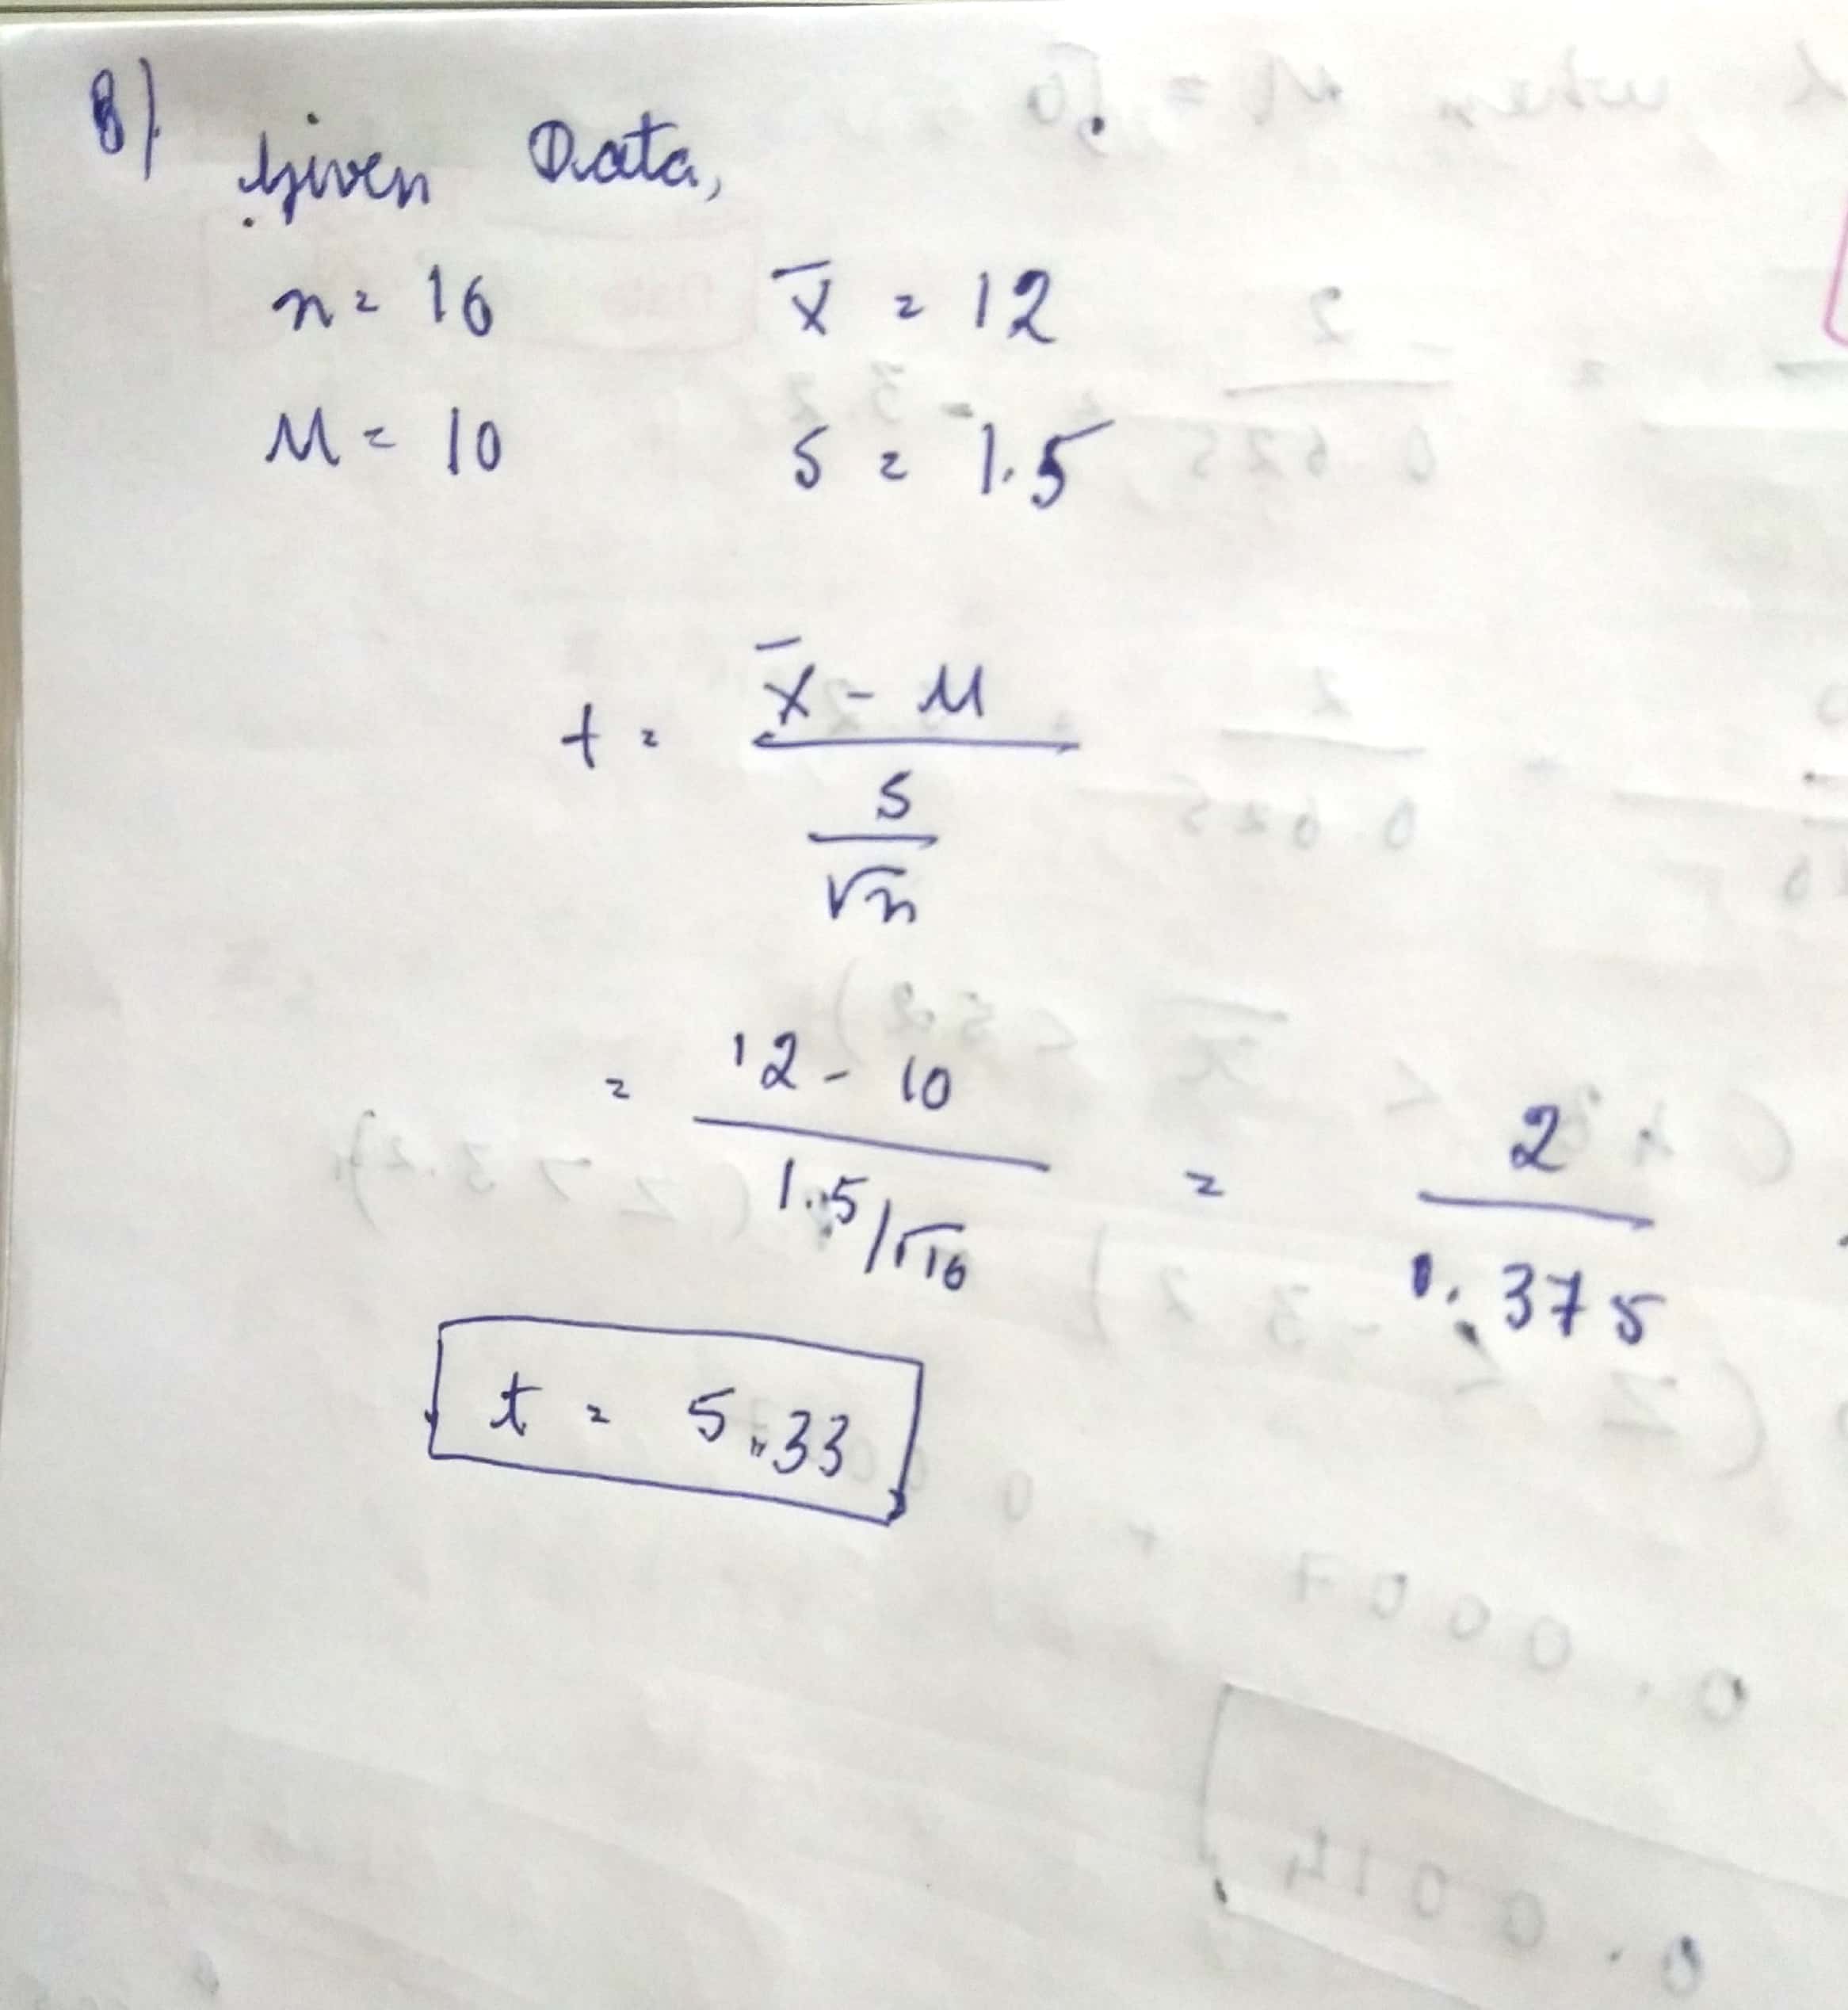 8)
Given Data,
n = 16 x̄ = 12
M = 10 s = 1.5
t = x̄ - M
s
√n
= 12 - 10 = 2
1.5/√16 0.375
t = 5.33